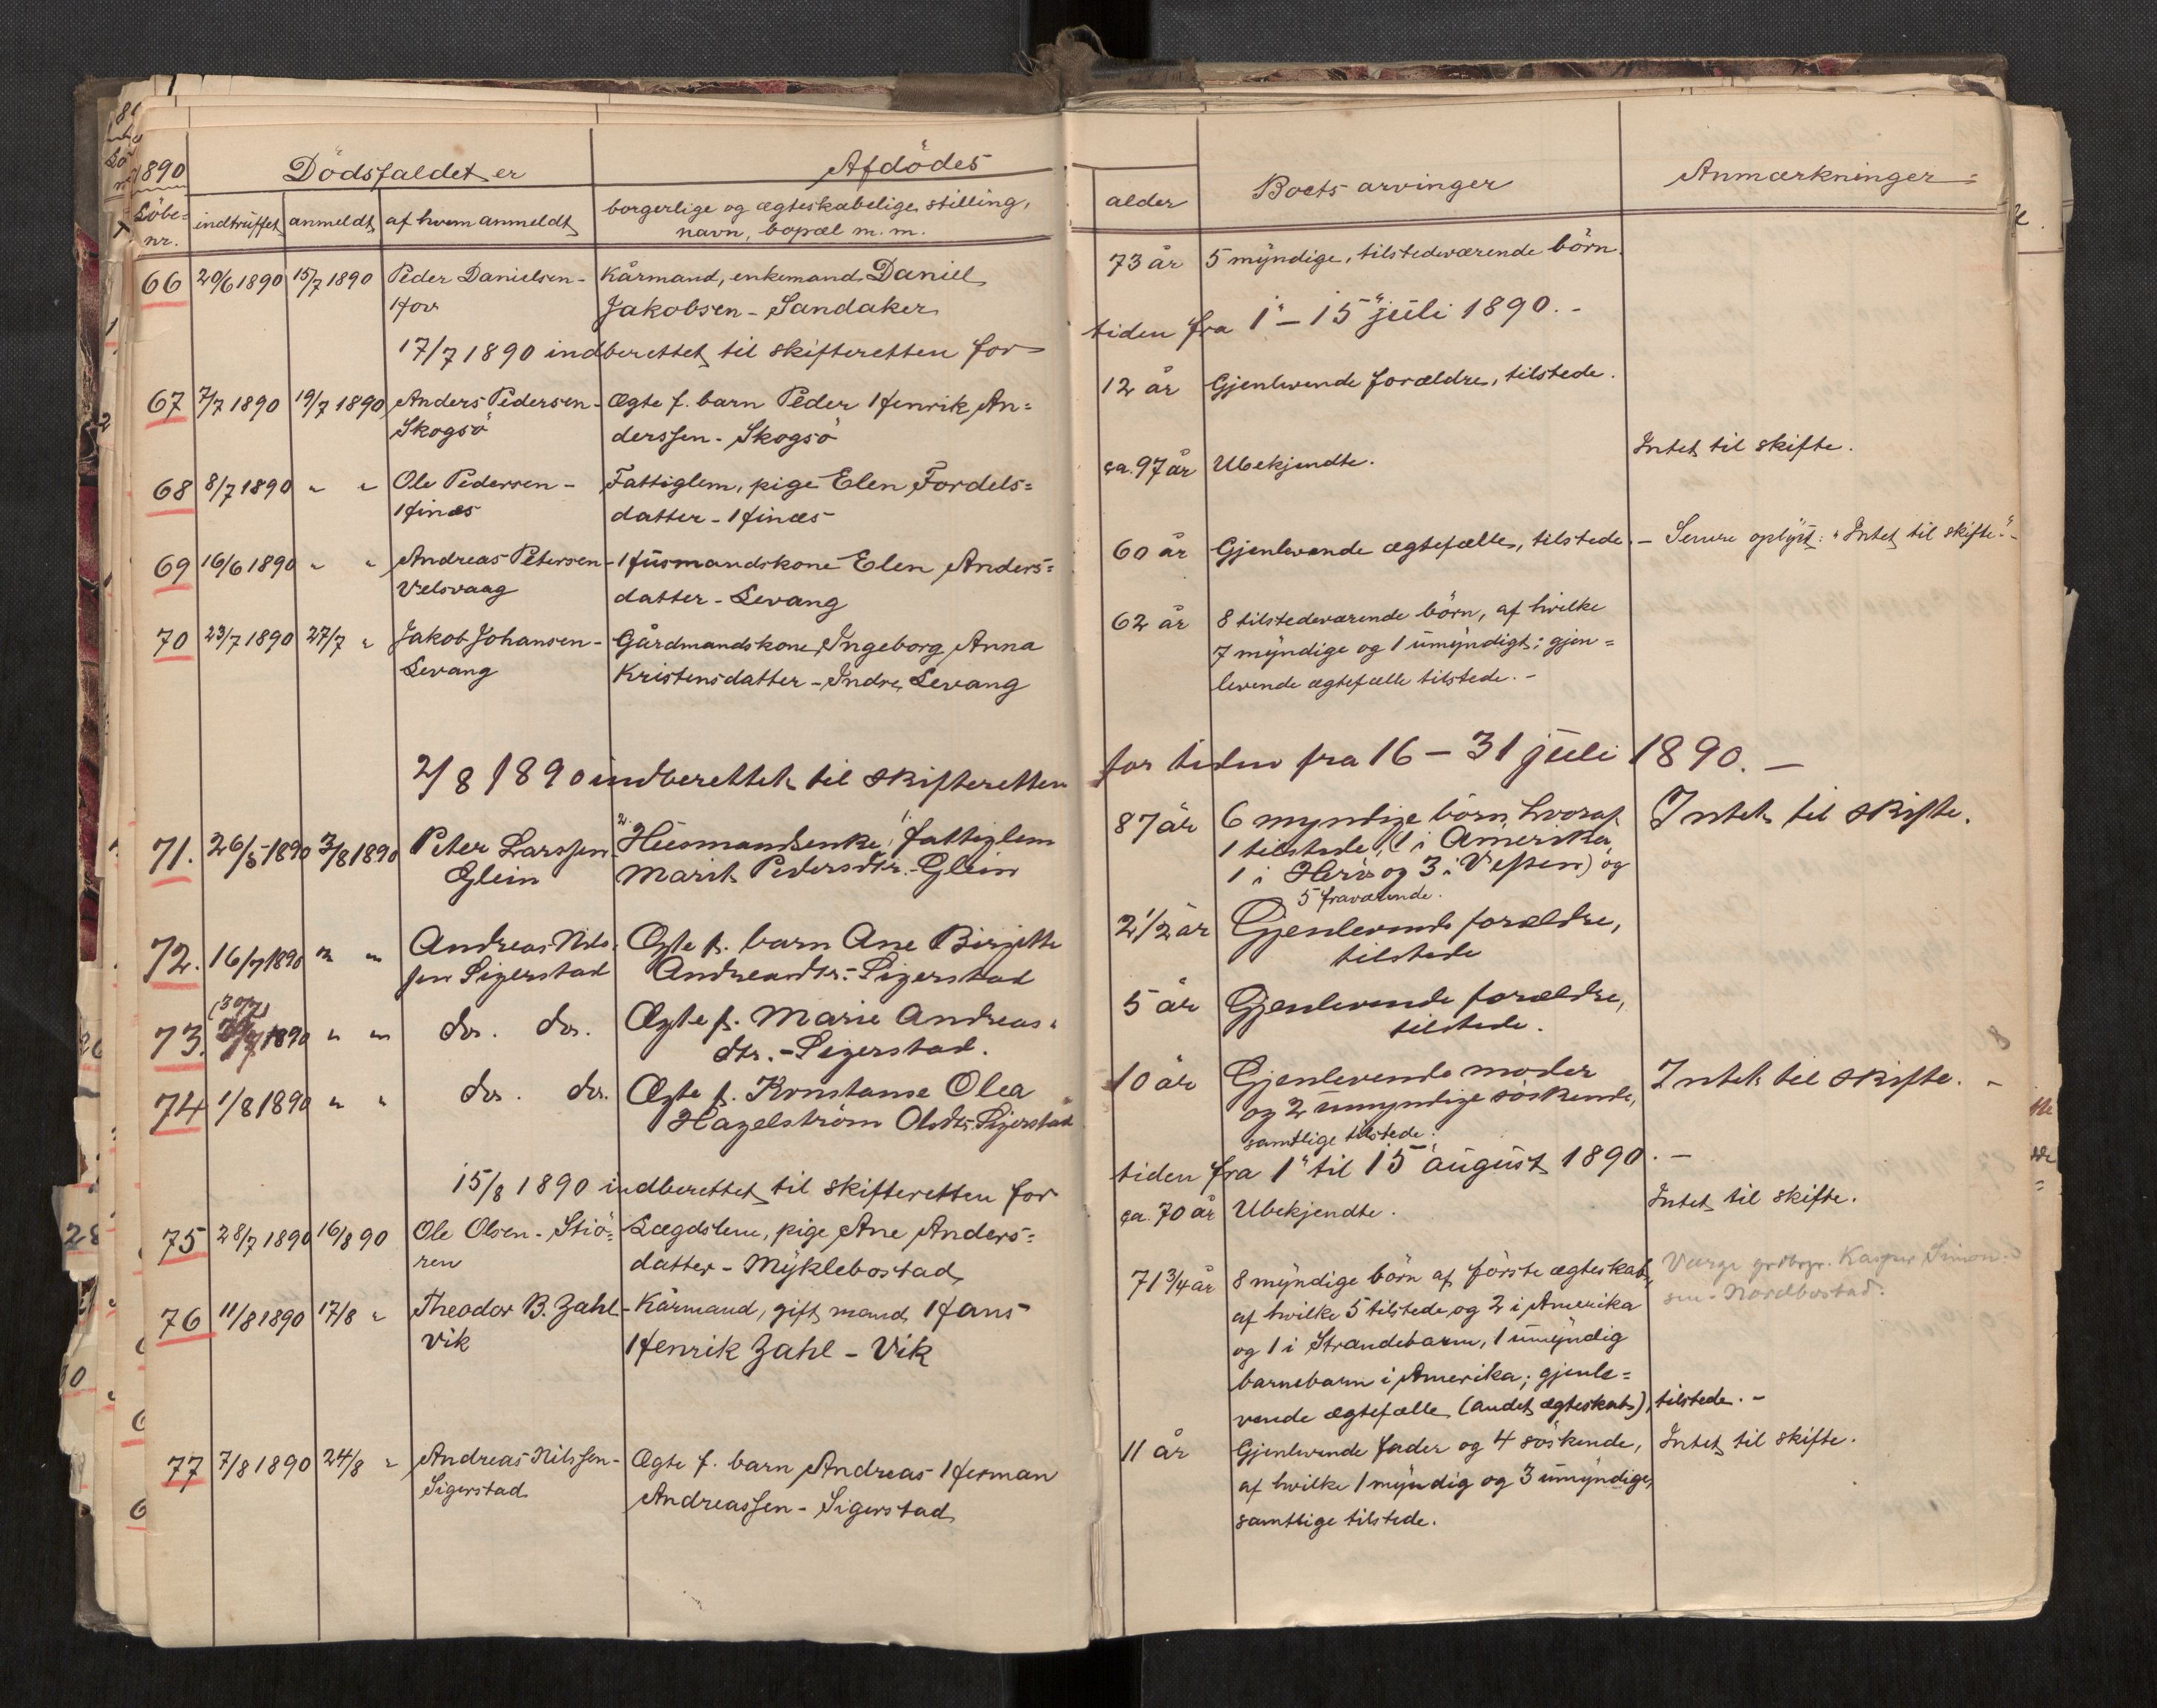 1890
Dödsfaldet er
Afdödes
Löbe-
nr.
indtruffet
anmeldt
af hvem anmeldt
borgerlige og ægteskabelige stilling,
navn, bopæl m. m.
alder
Boets arvinger
Anmærkninger
66 20/6 1890 15/7 1890 Peder Danielsen - Kårmand, enkemand Daniel 73 år 5 myndige, tilstedeværende börn.
Hov Jakobsen - Sandaker
17/7 1890 indberettet til skifteretten for tiden fra 1 - 15 juli 1890. -
67 7/7 1890 19/7 1890 Anders Pedersen - Ægte f. barn Peder Henrik An= 12 år Gjenlevende forældre, tilstede.
Skogsö derssen - Skogsö
68 8/7 1890 " " Ole Pedersen - Fattiglem, pige Elen Fordels= ca. 97 år Ubekjendte. Intet til skifte.
Hinæs datter - Hinæs
69 16/6 1890 " " Andreas Petersen - Husmandskone Elen Anders= 60 år Gjenlevende ægtefælle, tilstede. - Senere oplyst: "Intet til skifte." -
Velsvaag datter - Levang
70 23/7 1890 27/7 " Jakob Johansen - Gårdmandskone Ingeborg Anna 62 år 8 tilstedeværende börn, af hvilke
Levang Kristensdatter - Indre Levang 7 myndige og 1 umyndigt; gjen=
levende ægtefælle tilstede. -
2/8 1890 indberettet til skifteretten for tiden fra 16 - 31 juli 1890. -
71. 26/5 1890 3/8 1890 Peter Larssen 2. Husmandsenke, 1. fattiglem 87 år 6 myndige börn, hvoraf Intet til skifte.
Glein Marit Pedersdtr. - Glein 1 tilstede, (1 i Amerika,
1 i Herö og 3 i Vefsen) og
5 fraværende.
72. 16/7 1890 " " Andreas Nils- Ægte f. barn Ane Birgitte 2 1/2 år Gjenlevende forældre,
sen Sigerstad Andreasdtr. - Sigerstad tilstede
(30/7)
73. 1890 " " do. do. Ægte f. Marie Andreas- 5 år Gjenlevende forældre,
dtr. - Sigerstad. tilstede.
74 1/8 1890 " " do. do. Ægte f. Konstanse Olea 10 år Gjenlevende moder Intet til skifte. -
Hagelström Olsdtr. Sigerstad og 2 umyndige söskende,
samtlige tilstede.
15/8 1890 indberettet til skifteretten for tiden fra 1 til 15 august 1890. -
75 28/7 1890 16/8 90 Ole Olsen - Stiö= Lægdslem, pige Ane Anders= ca. 70 år Ubekjendte. Intet til skifte.
ren datter - Myklebostad
76 11/8 1890 17/8 " Theodor B. Zahl - Kårmand, gift mand Hans 71 3/4 år 8 myndige börn af förste ægteskab, Værge grdbrgr. Kasper Simon-
Vik Henrik Zahl - Vik af hvilke 5 tilstede og 2 i Amerika sen - Nordbostad.
og 1 i Strandebarm, 1 umyndig
barnebarn i Amerika; gjenle=
vende ægtefælle (andet ægteskab), tilstede. -
77 7/8 1890 24/8 " Andreas Nilssen - Ægte f. barn Andreas Herman 11 år Gjenlevende fader og 4 söskende, Intet til skifte.
Sigerstad Andreassen - Sigerstad af hvilke 1 myndig og 3 umyndige,
samtlige tilstede.